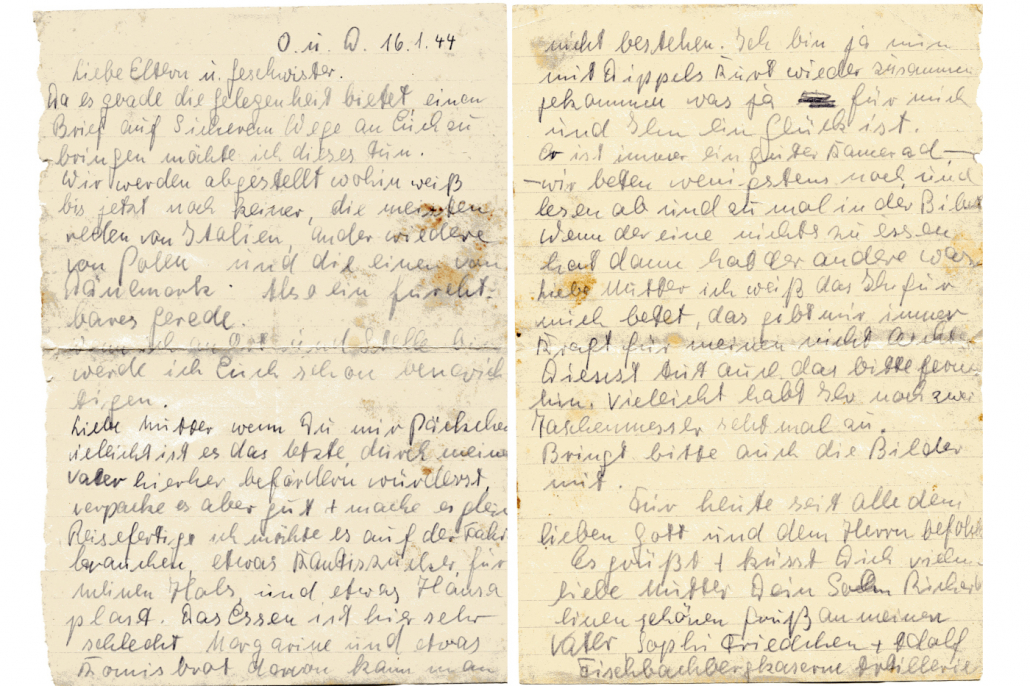 O. u. D. 16.1.44
Liebe Eltern u. Geschwister.
Da es grade die gelegenheit bietet, einen
Brief auf Sicherem Wege an Euch zu
bringen möhte ich dieses tun.
Wir werden abgestellt wohin weiß
bis jetzt noch keiner, die meisten
reden von Italien, ander wiedere
von Polen und die einen von
Dänemark. Also ein furcht-
bares gerede.
Ort und Stelle bin
werde ich Euch schon benarich
tigen.
Liebe Mutter wenn Du mir Päckche
vieleicht ist es das letzte durch meine
Vater hierher befördern würdesst,
verpacke es aber gut + mache es glei
Reisefertig, ich möhte es auf der Fahr
brauchen, etwas Kantiszucker für
meinen Hals, und etwas Hansa
plast. Das Essen ist hier sehr
schlecht Margarine und etwas
Komisbrot davon kann man
nicht bestehen. Ich bin ja nun
mit Düppels Kurt wieder zusammen
gekommen was ja für mich
und Ihn ein Glück ist.
Er ist immer ein guter Kamerad,—
—wir beten wenigstens noch und
lesen ab und zu mal in der Bibel
Wenn der eine nichts zu essen
hat dann hat der andere was.
Liebe Mutter ich weiß das Ihr für
mich betet, das gibt mir immer
Kraft für meinen nicht leicht
Dienst tut auch das bitte fernn
hin. Vieleicht habt Ihr noch zwei
Taschenmesser seht mal zu.
Bringt bitte auch die Bilder
mit.
Für heute seit alle dem
lieben Gott und dem Herrn befohl
Es grüßt + küsst Dich vielm.
liebe Mutter Dein Sohn Richard
einen schönen Gruß an meinen
Vater, Sophi Friedchen + Adolf
Fischbachbergkaserne Artillerie